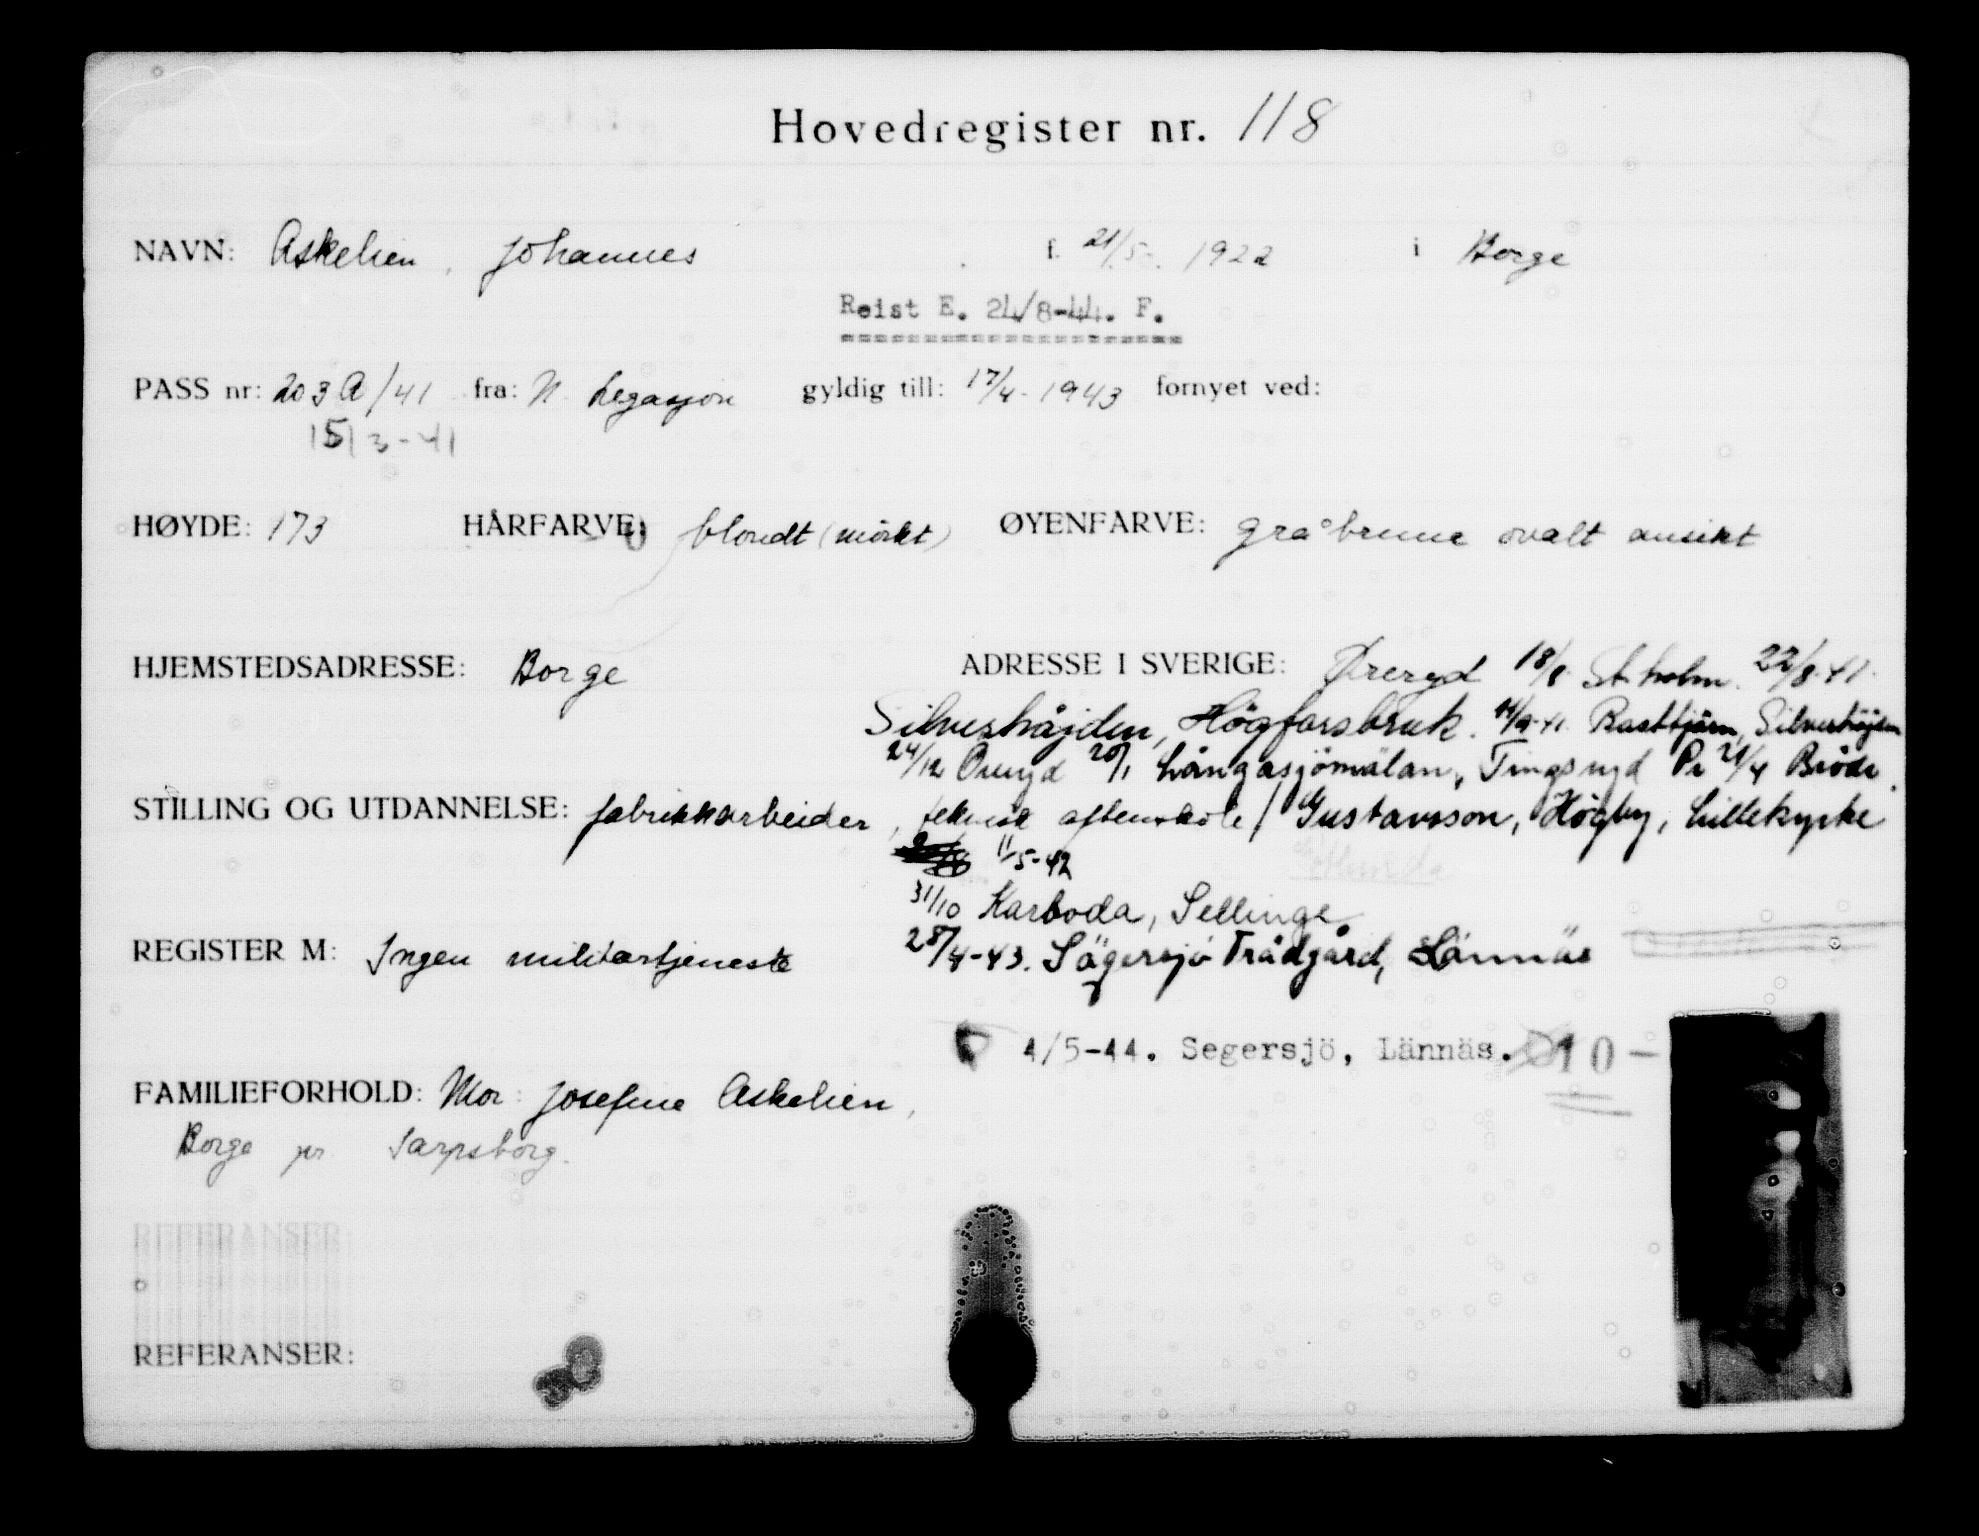 Hovedregister nr. 118
NAVN: Askelien, Johannes f. 21/5. 1922 i Borge
Reist E. 24/8-44. F.
PASS nr: 203 A/41 fra: N. Legasjon gyldig till: 17/4-1943 fornyet ved:
15/3-41
HØYDE: 173 HÅRFARVE: blondt (mörkt) ØYENFARVE: gråbrune ovalt ansikt
HJEMSTEDSADRESSE: Borge ADRESSE I SVERIGE: Øreryd 18/8 St.holm. 22/8-41.
Silverhöjden, Högforsbruk. 14/9-41. Rasttjärn, Silverhöjden
24/12 Öreryd 20/1 Långasjömålan, Tingsryd Pr 21/4 Bröde
STILLING OG UTDANNELSE: fabrikkarbeider, teknisk aftenskole / Gustavsson, Högby, Lillekyrke
11/5-42
31/10 Karboda, Sellinge
REGISTER M: Ingen militærtjeneste 28/4-43. Sägersjö Trädgård, Lännäs
4/5-44. Segersjö, Lännäs. 10-
FAMILIEFORHOLD: Mor: Josefine Askelien,
Borge pr Sarpsborg.
REFERANSER
REFERANSER: